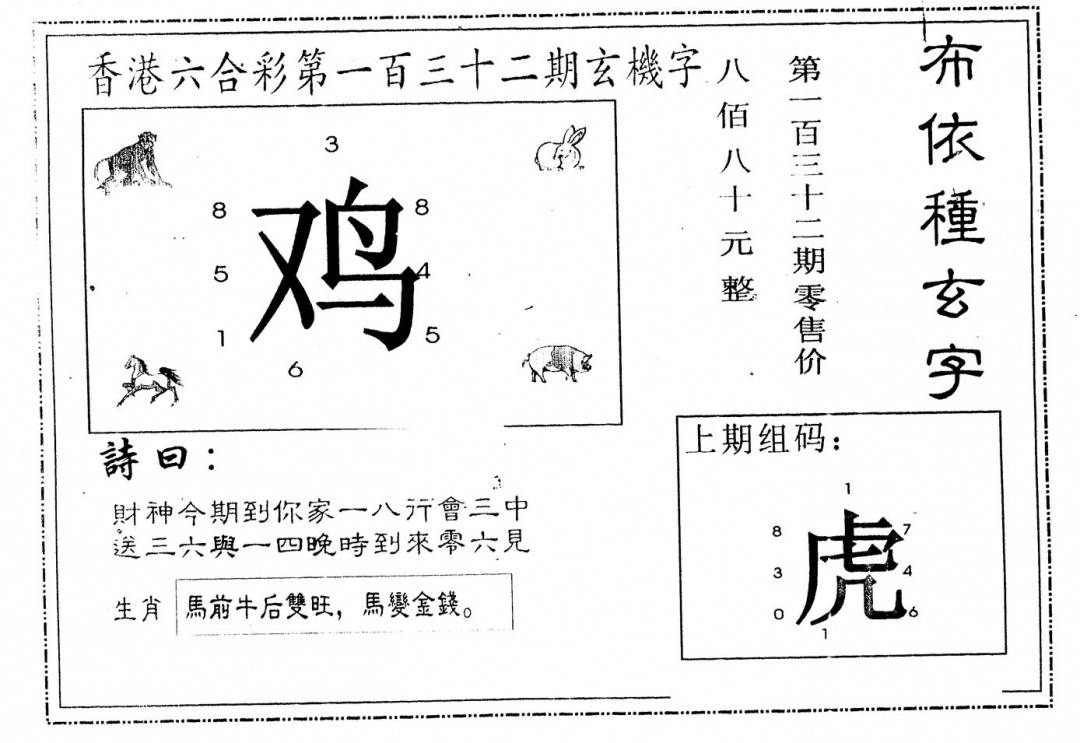 香港六合彩第一百三十二期玄機字
3
8
8
鸡
5
4
1
5
6
布依種玄字
第一百三十二期零售价
八佰八十元整
詩曰：
財神今期到你家一八行會三中
送三六與一四晚時到來零六見
生肖
馬前牛后雙旺，馬變金錢。
上期组码：
1
8
7
虎
3
4
0
6
1